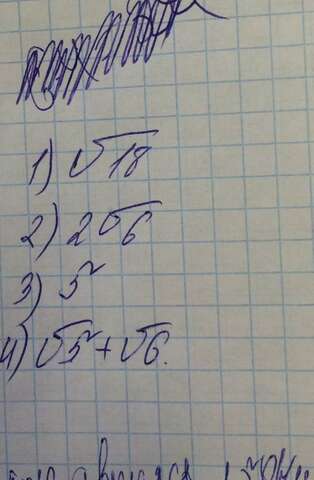 1) √18
2) 2√6
3) 5
4) √5+√6.